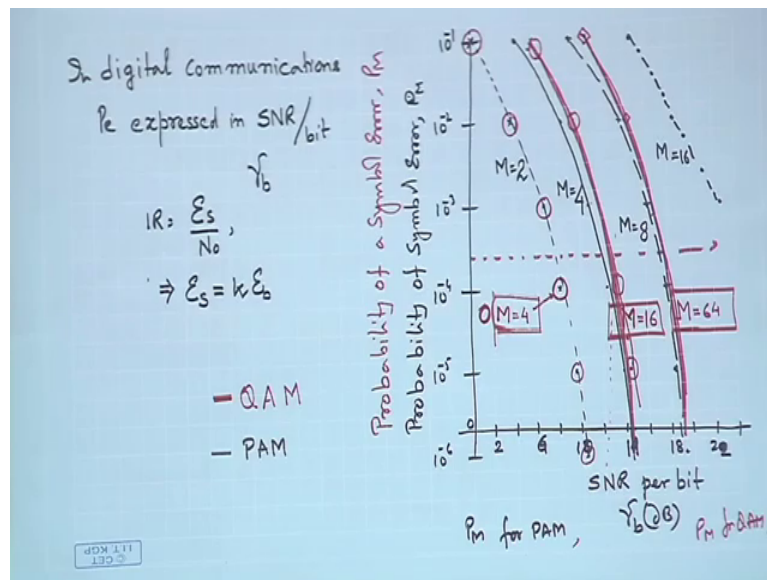 In digital communications
Pe expressed in SNR/bit
γb
Es
No
⇒ Es = kEb
QAM
PAM
Probability of a Symbol Error, PM
Probability of Symbol Error, PM
10⁻¹
10⁻²
10⁻³
10⁻⁴
10⁻⁵
0
10⁻⁶
M=2
M=4
M=8
M=16
M=4
M=16
M=64
2 6 18. 22
SNR per bit
γb(dB)
PM for PAM,
PM for QAM
© CET
I.I.T. KGP